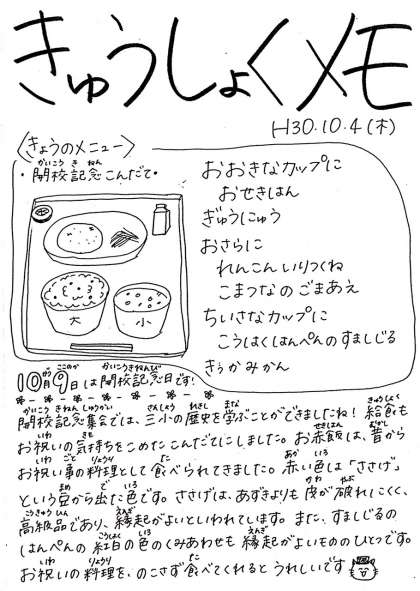 きゅうしょくメモ
H30.10.4(木)
〈きょうのメニュー〉
・開校記念こんだて・
おおきなカップに
おせきはん
ぎゅうにゅう
おさらに
れんこんいりつくね
こまつなのごまあえ
ちいさなカップに
こうはくはんぺんのすましじる
きょうかみかん
大
小
10月9日は開校記念日です!
開校記念集会では、三小の歴史を学ぶことができましたね!給食も
お祝いの気持ちをこめたこんだてにしました。お赤飯は、昔から
お祝い事の料理として食べられてきました。赤い色は「ささげ」
という豆から出た色です。ささげは、あずきよりも皮が破れにくく、
高級品であり、縁起がよいといわれています。また、すましじるの
はんぺんの紅白の色のくみあわせも縁起がよいもののひとつです。
お祝いの料理を、のこさず食べてくれるとうれしいです